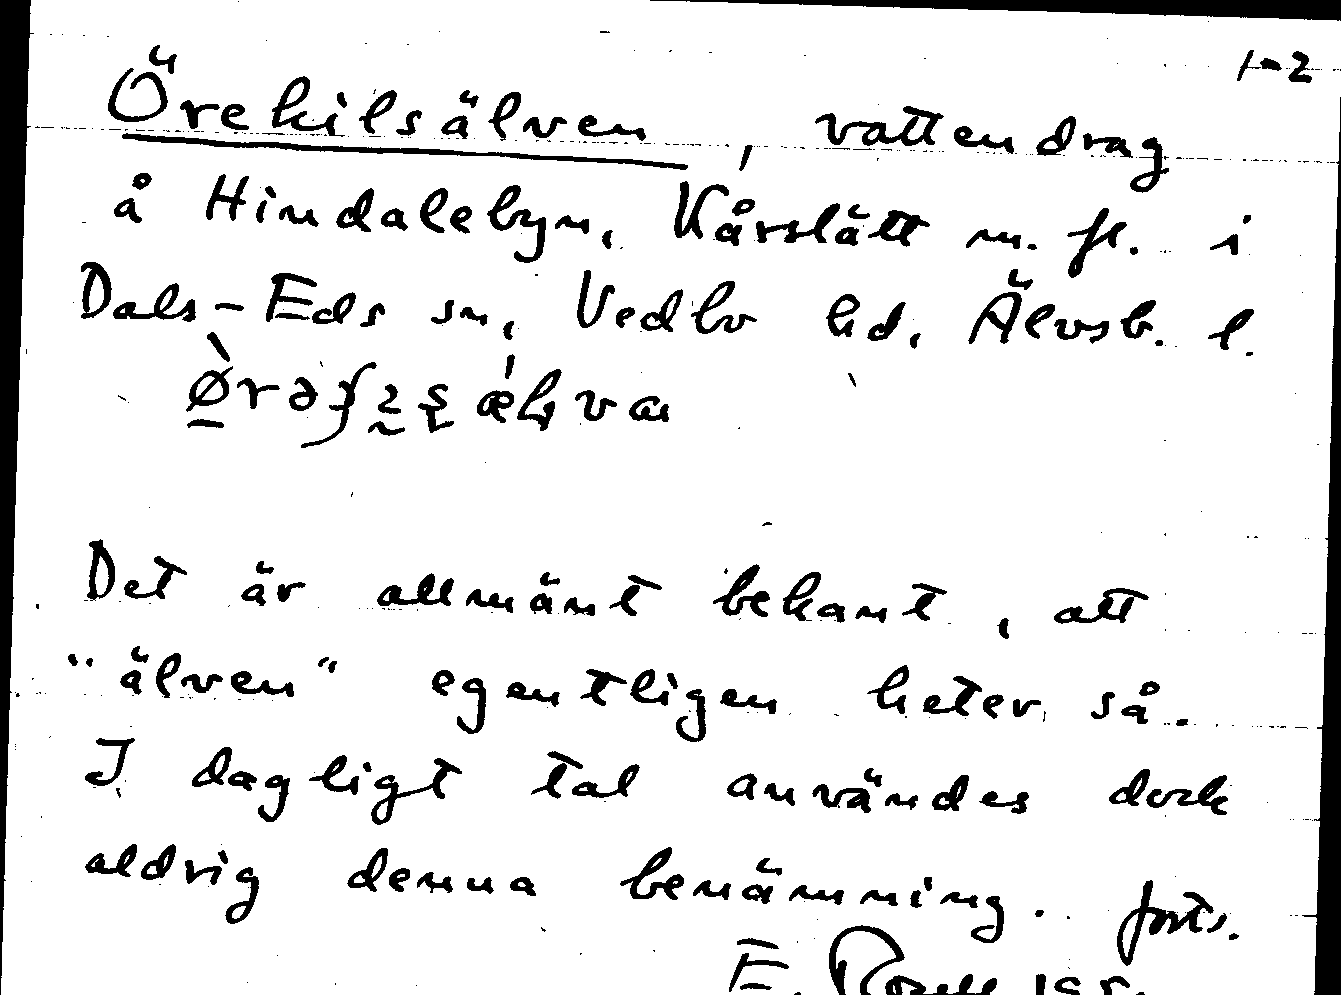 1-2
Örekilsälven, vattendrag
å Hindalebyn, Kårslätt m. fl. i
Dals-Eds sn, Vedbo hd, Älvsb. l.
Det är allmänt bekant, att
"älven" egentligen heter så.
I dagligt tal användes dock
aldrig denna benämning. forts.
E.